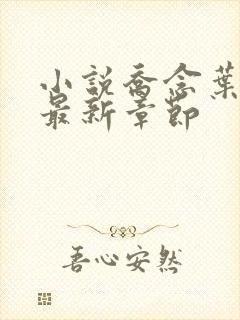 小説喬念葉
最新章節
吾心安然